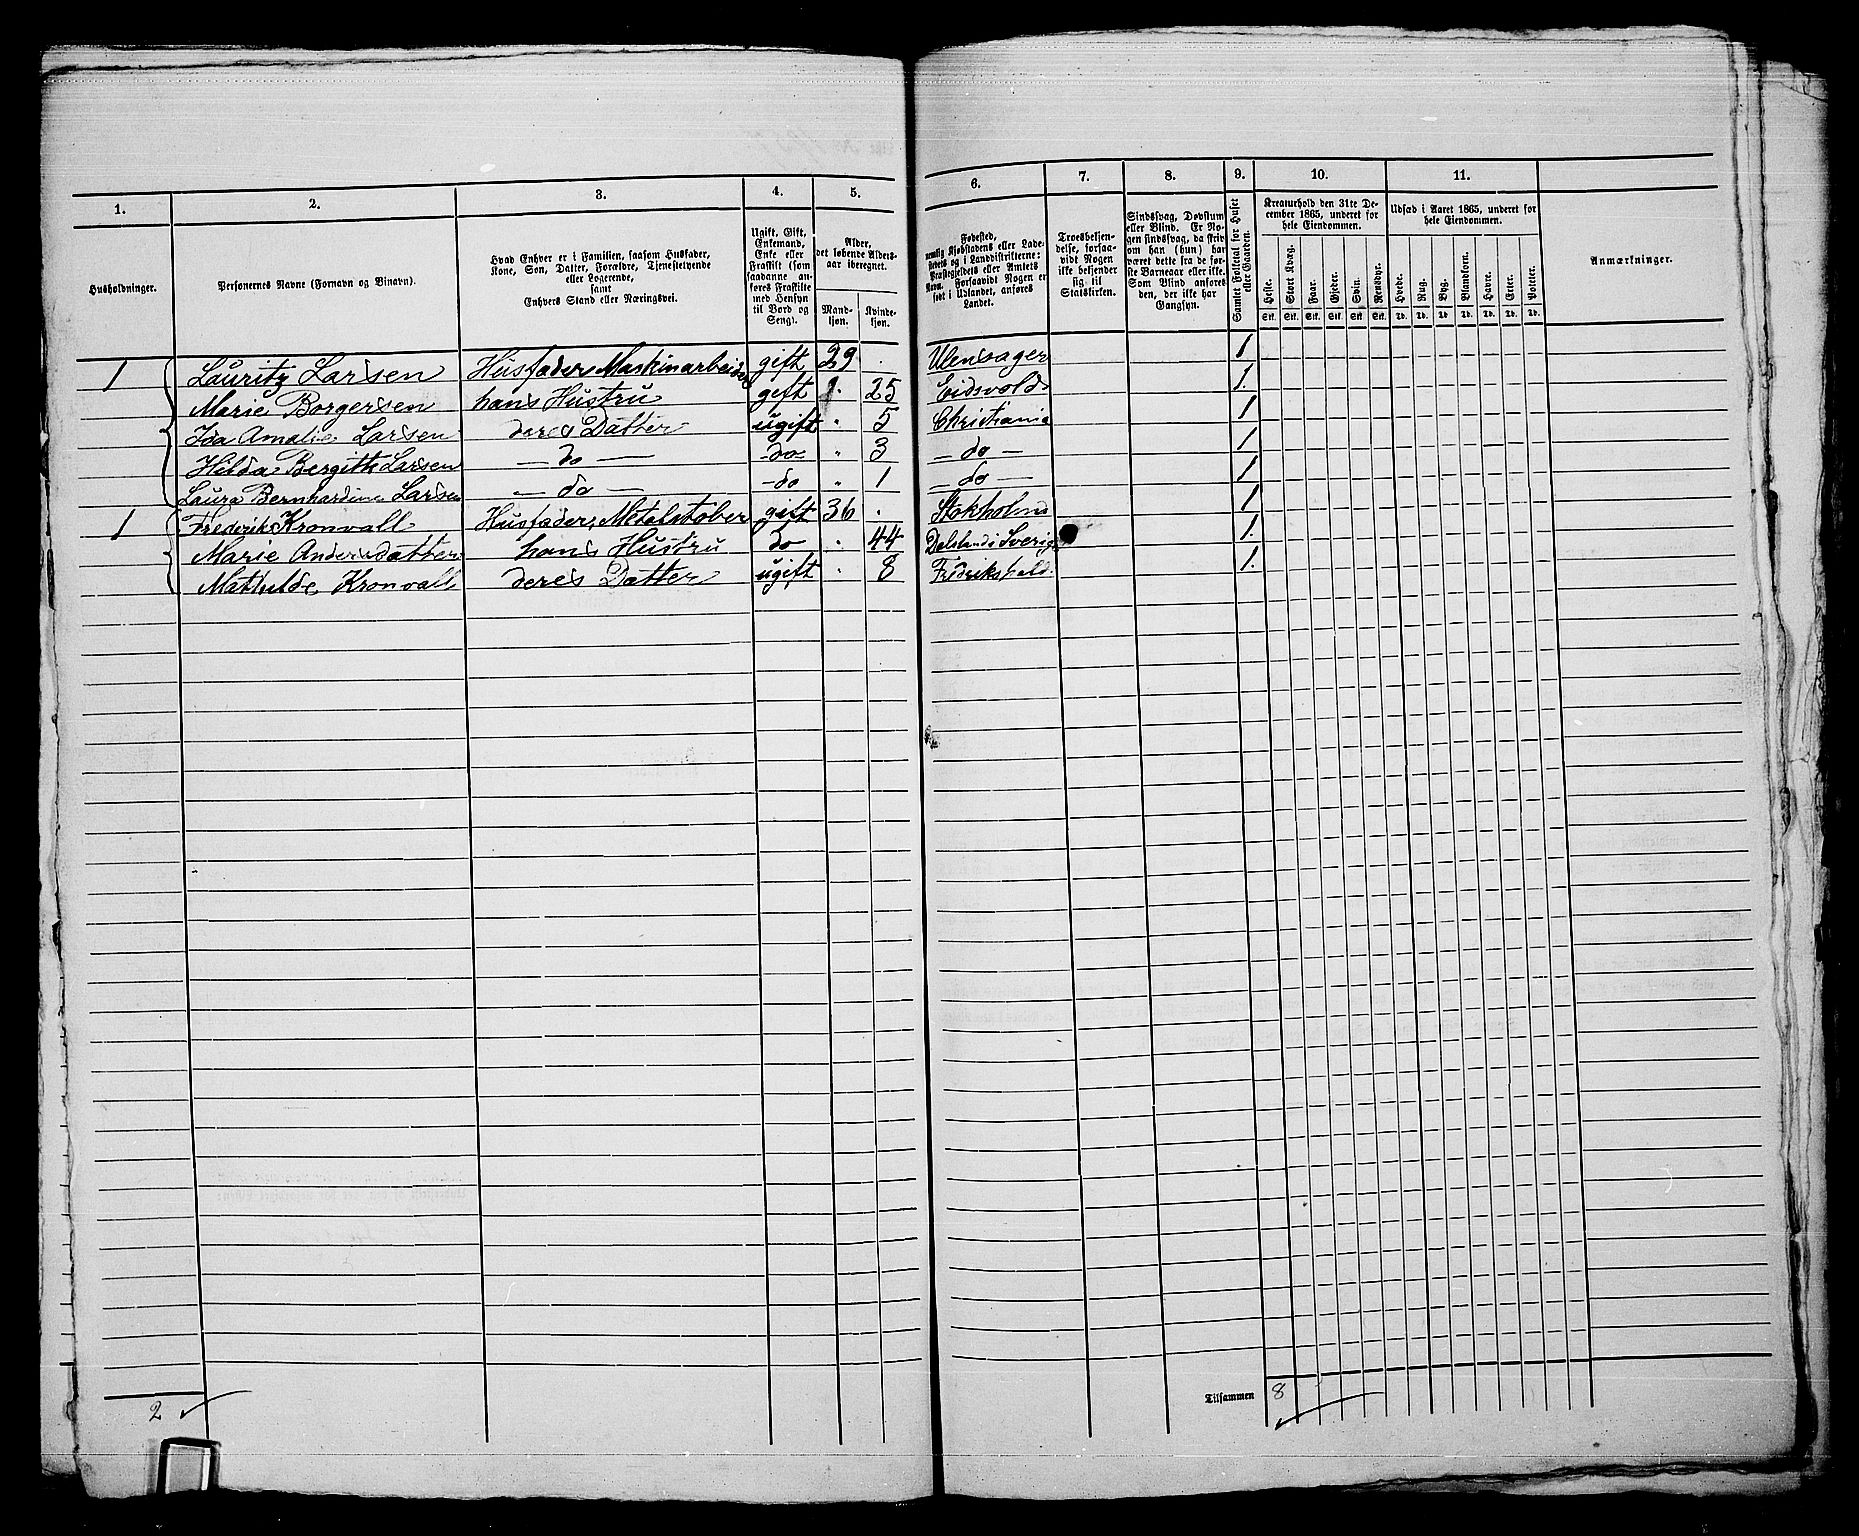 1. 2. 3. 4. 5. 6. 7. 8. 9. 10. 11.
Husholdninger.
Personernes Navne (Fornavn og Binavn).
Hvad Enhver er i Familien, saasom Husfader,
Kone, Søn, Datter, Forældre, Tjenestetyende
eller Logerende,
samt
Enhvers Stand eller Næringsvei.
Ugift, Gift,
Enkemand,
Enke eller
Fraskilt (som
saadanne an-
føres Fraskilte
med Hensyn
til Bord og
Seng).
Alder,
det løbende Alders-
aar iberegnet.
Mand-
kjøn.
Kvinde-
kjøn.
Fødested,
nemlig Kjøbstadens eller Lade-
stedets og i Landdistrikterne:
Præstegjeldets eller Amtets
Navn. Forsaavidt Nogen er
født i Udlandet, anføres
Landet.
Troesbekjen-
delse, forsaa-
vidt Nogen
ikke bekjender
sig til
Statskirken.
Sindssvag, Døvstum
eller Blind. Er No-
gen sindssvag, da skriv
om han (hun) har
været dette fra de før-
ste Barneaar eller ikke.
Som Blind anføres
den, der ikke har
Gangsyn.
Samlet Folketal for Huset
eller Gaarden.
Kreaturhold den 31te De-
cember 1865, underet for
hele Eiendommen.
Heste. Stort Kvæg. Faar. Gjeder. Svin. Rensdyr.
Stk. Stk. Stk. Stk. Stk. Stk.
Udsæd i Aaret 1865, underet for
hele Eiendommen.
Hvede. Rug. Byg. Blandkorn. Havre. Erter. Poteter.
Td. Td. Td. Td. Td. Td. Td.
Anmærkninger.
1 Lauritz Larsen Husfader, Maskinarbeider gift 29 . Ulensager 1
Marie Borgersen hans Hustru gift . 25 Eidsvold 1.
Ida Amalie Larsen deres Datter ugift " 5 Christiania 1
Hilda Bergitte Larsen — do — -do- " 3 — do — 1
Laura Bernhardine Larsen — do — -do " 1 — do — 1
1 Frederik Kronvall Husfader, Metalstøber gift 36 . Stokholm 1
Marie Andersdatter hans Hustru do . 44 Dalsland i Sverig 1.
Mathilde Kronvall deres Datter ugift . 8 Fredrikshald. 1.
2
Tilsammen 8